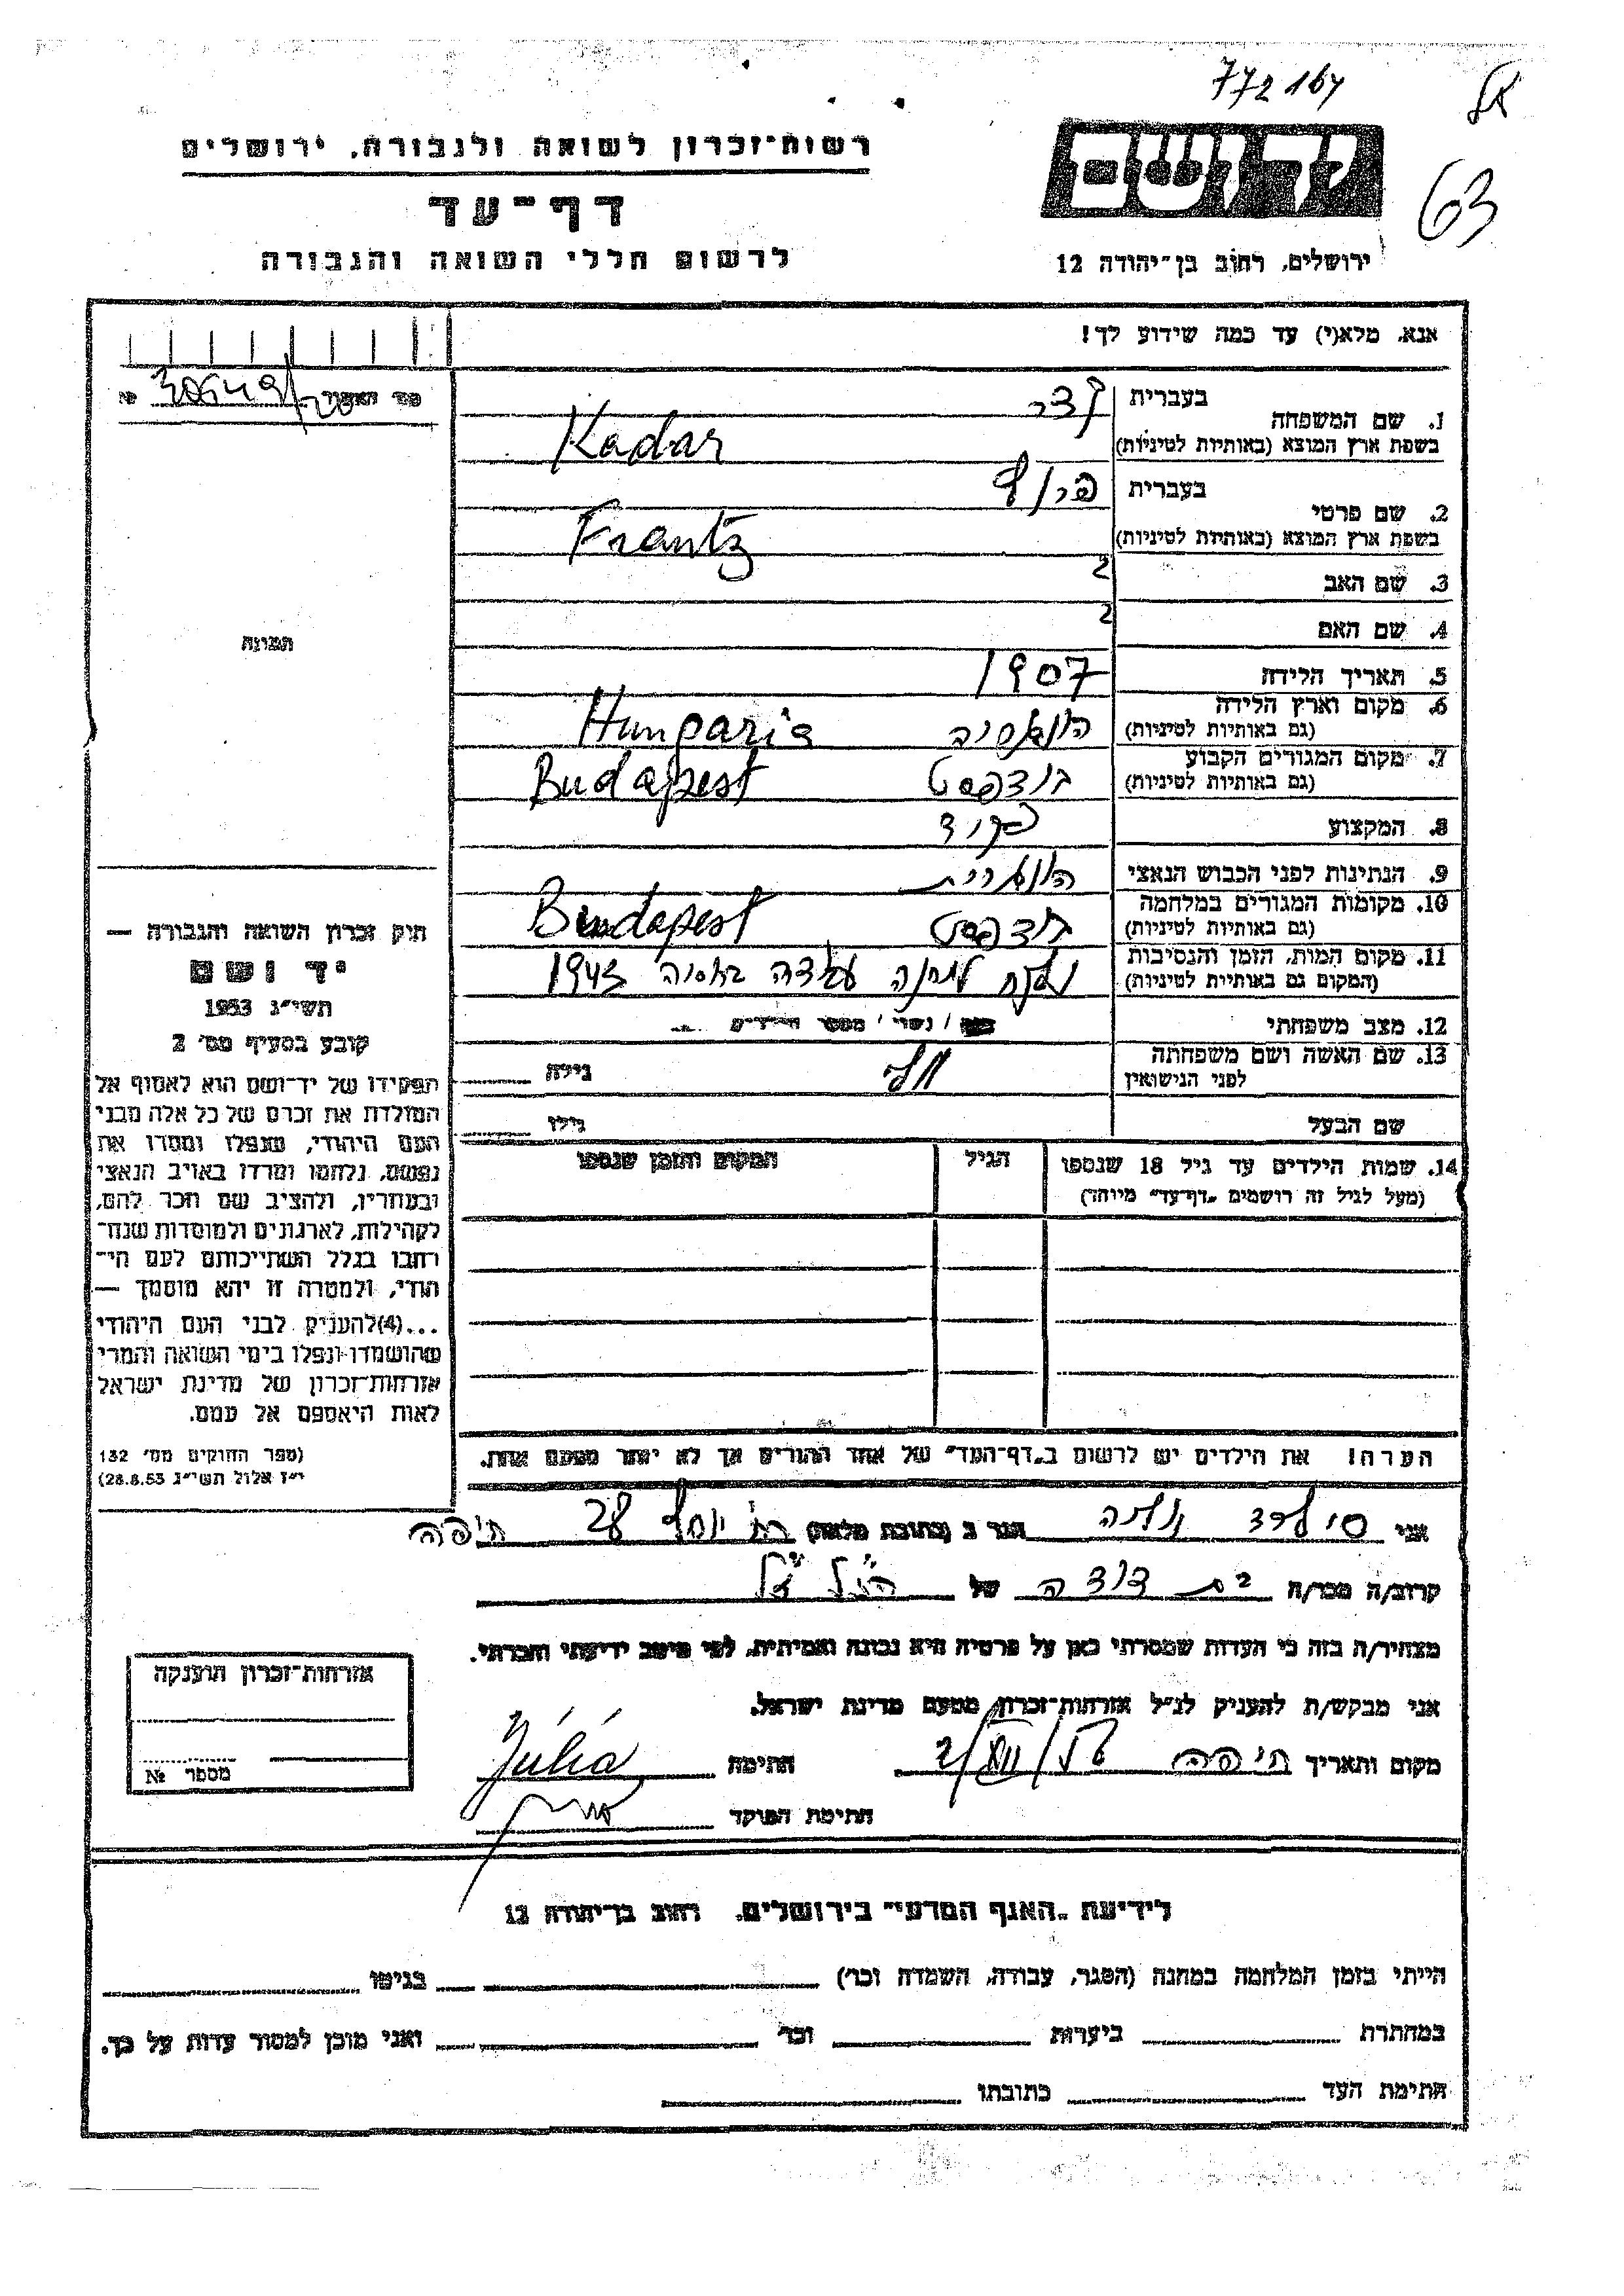 772164
63
רשות־זכרון לשואה ולגבורה, ירושלים
דף־עד
לרשום חללי השואה והגבורה
יד ושם
ירושלים, רחוב בן־יהודה 12
אנא, מלא(י) עד כמה שידוע לך!
1. שם המשפחה
בעברית קדר
בשפת ארץ המוצא (באותיות לטיניות) Kadar
2. שם פרטי
בעברית
בשפת ארץ המוצא (באותיות לטיניות) Frantz
3. שם האב ?
4. שם האם ?
5. תאריך הלידה 1907
6. מקום וארץ הלידה
(גם באותיות לטיניות) Hungaria
7. מקום המגורים הקבוע
(גם באותיות לטיניות) בודפסט Budapest
8. המקצוע פקיד
9. הנתינות לפני הכבוש הנאצי הונגרית
10. מקומות המגורים במלחמה
(גם באותיות לטיניות) בודפסט Budapest
11. מקום המות, הזמן והנסיבות
(המקום גם באותיות לטיניות) נשלח למחנה עבודה 1943
12. מצב משפחתי / נשוי / מספר הילדים
13. שם האשה ושם משפחתה
לפני הנישואין גילה
שם הבעל גילו
14. שמות הילדים עד גיל 18 שנספו הגיל המקום והזמן שנספו
(מעל לגיל זה רושמים „דף־עד” מיוחד)
הערה! את הילדים יש לרשום ב„דף־העד” של אחד ההורים אך לא יותר מפעם אחת.
תמונה
חוק זכרון השואה והגבורה —
יד ושם
תשי״ג 1953
קובע בסעיף מס׳ 2
תפקידו של יד־ושם הוא לאסוף אל
המולדת את זכרם של כל אלה מבני
העם היהודי, שנפלו ומסרו את
נפשם, נלחמו ומרדו באויב הנאצי
ובעוזריו, ולהציב שם וזכר להם,
לקהילות, לארגונים ולמוסדות שנח־
רבו בגלל השתייכותם לעם הי־
הודי, ולמטרה זו יהא מוסמך —
...(4)להעניק לבני העם היהודי
שהושמדו ונפלו בימי השואה והמרי
אזרחות־זכרון של מדינת ישראל
לאות היאספם אל עמם.
(ספר החוקים מס׳ 132
י״ז אלול תשי״ג 28.8.53)
אני יוליה הגר ב (כתובת מלאה) יוסף 28 חיפה
קרוב/ה מכר/ה בת דודה של הנ״ל
מצהיר/ה בזה כי העדות שמסרתי כאן על פרטיה היא נכונה ואמיתית, לפי מיטב ידיעתי והכרתי.
אני מבקש/ת להעניק לנ״ל אזרחות־זכרון מטעם מדינת ישראל.
מקום ותאריך חיפה חתימה Júlia
חתימת הפוקד
אזרחות־זכרון הוענקה
מספר №
לידיעת „האגף המדעי” בירושלים, רחוב בן־יהודה 12
הייתי בזמן המלחמה במחנה (הסגר, עבודה, השמדה וכו׳) בגיטו
במחתרת ביערות וכו׳ ואני מוכן למסור עדות על כך.
חתימת העד כתובתו